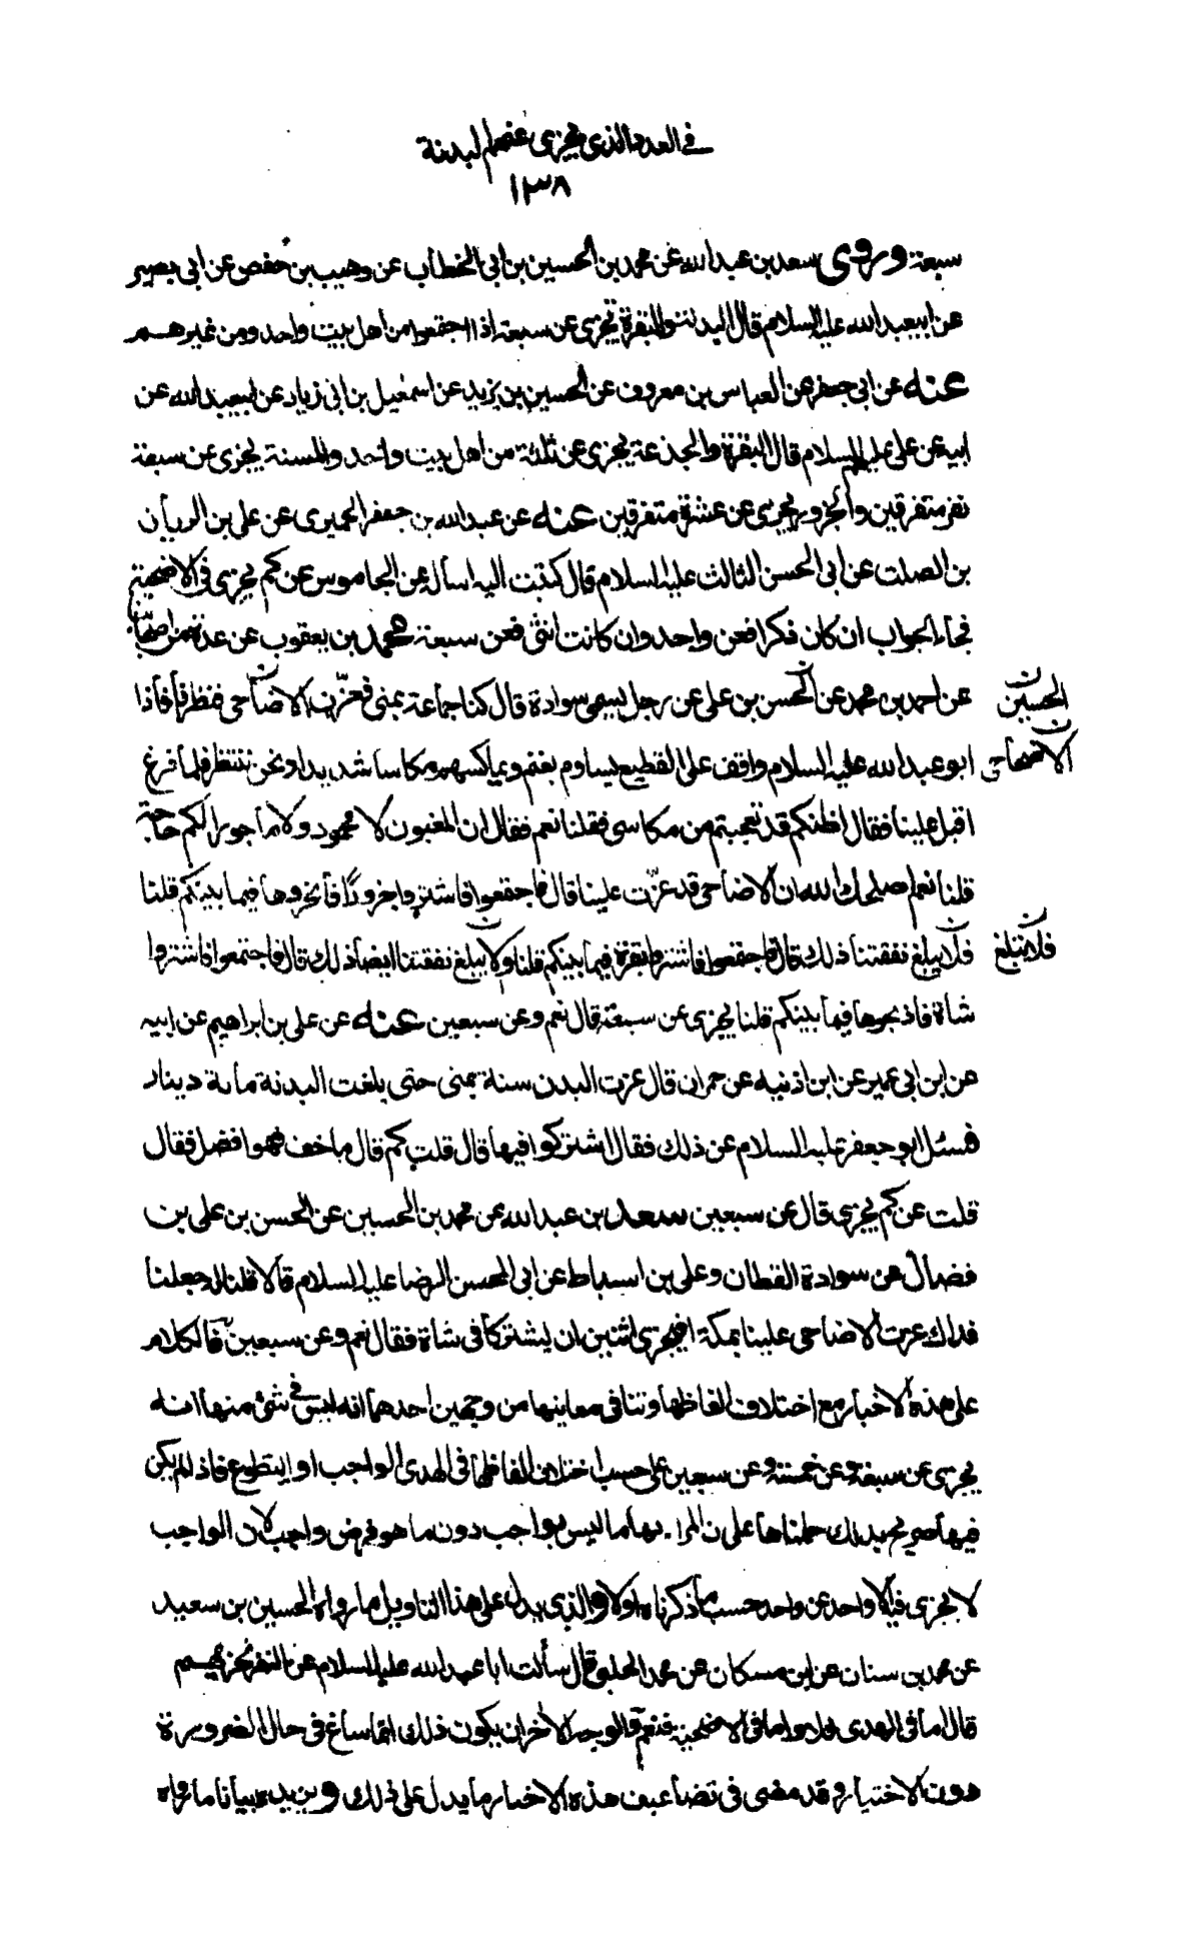 في العدد الذي يجزي عنهم البدنة
١٣٨
سبعة وروى سعد بن عبد الله عن محمد بن الحسين بن ابي الخطاب عن وهيب بن حفص عن ابي بصير
عن ابيعبد الله عليه السلام قال البدنة والبقرة تجزى عن سبعة اذا اجتمعوا من اهل بيت واحد ومن غيرهم
عنه عن ابي جعفر عن العباس بن معروف عن الحسين بن يزيد عن اسمعيل بن ابي زياد عن ابيعبد الله عن
ابيه عن علي عليهم السلام قال البقرة والجذعة يجزى عن ثلثة من اهل بيت واحد والمسنة يجزى عن سبعة
نفر متفرقين والجزور يجزى عن عشرة متفرقين عنه عن عبد الله بن جعفر الحميرى عن علي بن الريان
بن الصلت عن ابي الحسن الثالث عليه السلام قال كتبت اليه اسأله عن الجاموس عن كم يجزى في الاضحية
فجاء الجواب ان كان ذكرا فعن واحد وان كانت انثى فعن سبعة محمد بن يعقوب عن عدة من اصحابنا
عن احمد بن محمد عن الحسن بن علي عن رجل يسمى سوادة قال كنا جماعة بمنى فعزّت الاضاحى فنظرنا فأذا
الحسين ن
ابو عبد الله عليه السلام واقف على القطيع يساوم بغنم ويماكسهم مكاسا شديدا ونحن ننتظر فلما فرغ
الاضحاحى ن
اقبل علينا فقال اظنكم قد تعجبتم من مكاسى فقلنا نعم فقال ان المغبون لا محمود ولا مأجور الكم حاجة
قلنا نعم اصلحك الله ان الاضاحى قد عزّت علينا قال فاجتمعوا فاشتروا جزورًا فانحروها فيما بينكم قلنا
فلا يبلغ نفقتنا ذلك قال فاجتمعوا فاشتروا بقرة فيما بينكم قلنا ولا يبلغ نفقتنا ايضا ذلك قال فاجتمعوا فاشتروا
فلا تبلغ ن
شاة فاذبحوها فيما بينكم قلنا يجزى عن سبعة قال نعم وعن سبعين عنه عن علي بن ابراهيم عن ابيه
عن ابن ابي عمير عن ابن اذنيه عن حمران قال عزت البدن سنة بمنى حتى بلغت البدنة مائة دينار
فسئل ابو جعفر عليه السلام عن ذلك فقال اشتركوا فيها قال قلت كم قال ما خف فهو افضل فقال
قلت عن كم يجزى قال عن سبعين سعد بن عبد الله عن محمد بن الحسين عن الحسن بن علي بن
فضال عن سوادة القطان وعلي بن اسباط عن ابي الحسن الرضا عليه السلام قالا قلنا له جعلنا
فداك عزت الاضاحى علينا بمكة افيجزى اثنين ان يشتركا في شاة فقال نعم وعن سبعين فالكلام
على هذه الاخبار مع اختلاف الفاظها وتنافى معانيها من وجهين احدهما انه ليس في شئ منها انه
يجزى عن سبعة وعن خمسة وعن سبعين على حسب اختلاف الفاظها في الهدى الواجب او التطوع فاذا لم يكن
فيها صريح بذلك حملناها على ان المراد بها ما ليس بواجب دون ما هو فرض واجب لان الواجب
لا يجزى فيه الا واحد عن واحد حسب ما ذكرناه اولا والذى يدل على هذا التاويل ما رواه الحسين بن سعيد
عن محمد بن سنان عن ابن مسكان عن محمد الحلبى قال سألت ابا عبد الله عليه السلام عن النفر تجزيهم
قال اما في الهدى فلا واما في الاضحية فنعم والوجه الاخر ان يكون ذلك انما ساغ في حال الضرورة
دون الاختيار وقد مضى في تضاعيف هذه الاخبار ما يدل على ذلك ويزيده بيانا ما رواه